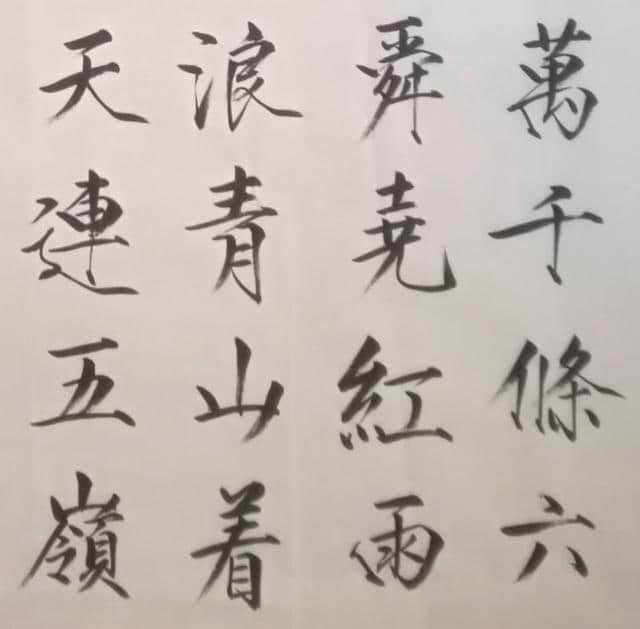 萬千條六
舜堯紅雨
浪青山着
天連五嶺